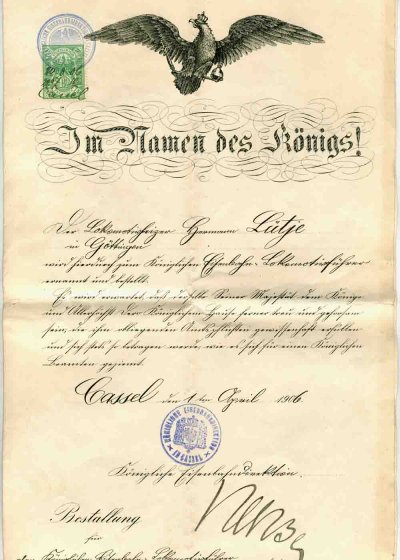 Im Namen des Königs!
Der Lokomotivheizer Hermann Lütje
in Göttingen
wird hierdurch zum Königlichen Eisenbahn-Lokomotivführer
ernannt und bestellt.
Es wird erwartet, daß derselbe Seiner Majestät dem Könige
und Allerhöchst der Königlichen Hause ferner treu und gehorsam
sein, die ihm obliegenden Amtspflichten gewissenhaft erfüllen
und sich stets so betragen werde, wie es sich für einen Königlichen
Beamten geziemt.
Cassel, den 1ten April 1906
KÖNIGLICHE EISENBAHNDIREKTION
IN CASSEL
Königliche Eisenbahndirektion.
Bestallung
für
den Königlichen Eisenbahn-Lokomotivführer